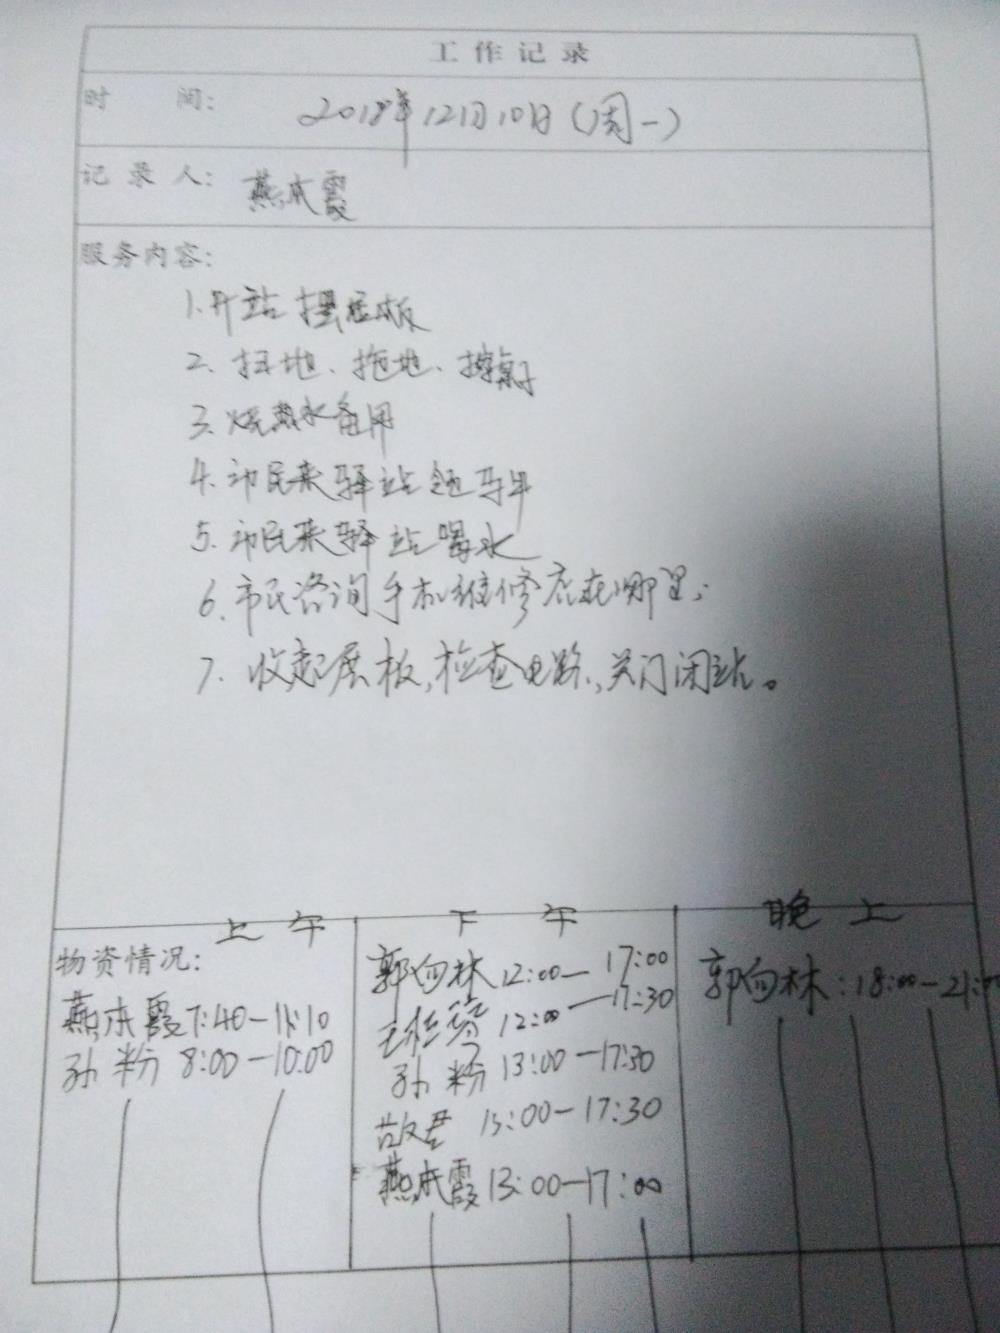 工作记录
时 间: 2018年12月10日(周一)
记录人: 燕本霞
服务内容:
1.开站 摆展板
2. 扫地、拖地、擦桌子
3. 烧热水备用
4. 市民来驿站领
5. 市民来驿站喝水
6. 市民咨询手机维修店在哪里;
7. 收起展板,检查电路,关门闭站。
上 午 下 午 晚 上
物资情况:
燕本霞 7:40-11:10
孙粉 8:00-10:00
郭向林 12:00-17:00
12:00-17:30
孙粉 13:00-17:30
君 13:00-17:30
燕本霞 13:00-17:00
郭向林:18:00-21:00